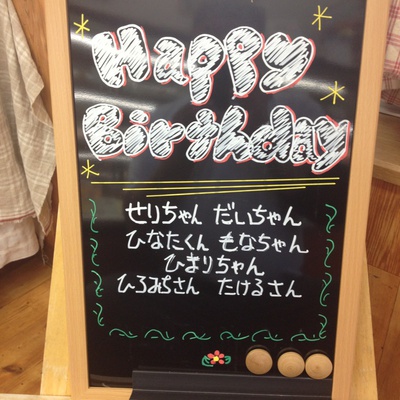 Happy
Birthday
せりちゃん だいちゃん
ひなたくん もなちゃん
ひまりちゃん
ひろみさん たけるさん